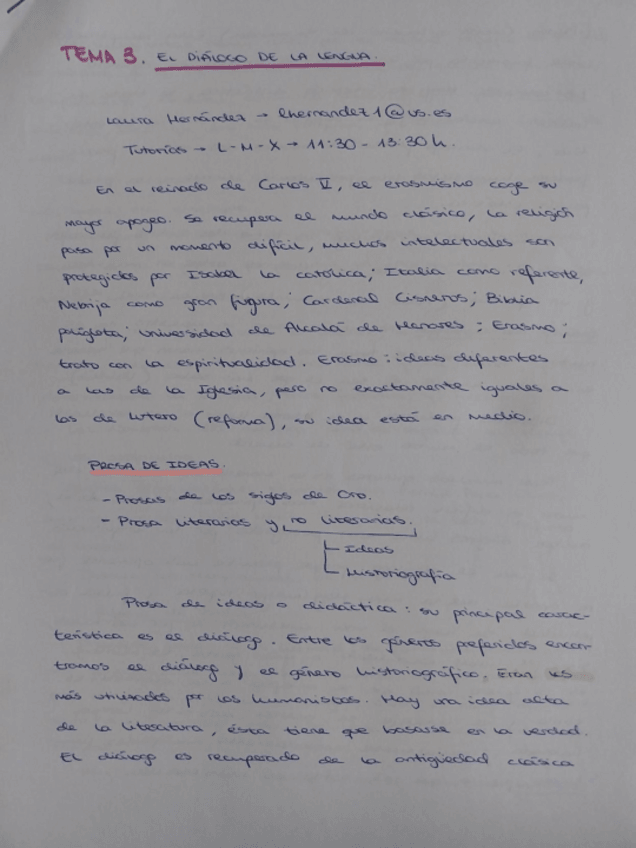 TEMA 3. EL DIÁLOGO DE LA LENGUA.
Laura Hernández → lhernandez1@us.es
Tutorías → L-M-X → 11:30 - 13:30 h.
En el reinado de Carlos V, el erasmismo coge su
mayor apogeo. Se recupera el mundo clásico, la religión
pasa por un momento difícil, muchos intelectuales son
protegidos por Isabel la católica; Italia como referente,
Nebrija como gran figura; Cardenal Cisneros; Biblia
políglota; Universidad de Alcalá de Henares; Erasmo;
trato con la espiritualidad. Erasmo: ideas diferentes
a las de la Iglesia, pero no exactamente iguales a
las de Lutero (reforma), su idea está en medio.
PROSA DE IDEAS.
- Prosas de los siglos de Oro.
- Prosa literarias y no literarias.
Ideas
Historiografía
Prosa de ideas o didáctica: su principal carac-
terística es el diálogo. Entre los géneros preferidos encon
tramos el diálogo y el género historiográfico. Eran los
más utilizados por los humanistas. Hay una idea alta
de la literatura, ésta tiene que basarse en la verdad.
El diálogo es recuperado de la antigüedad clásica